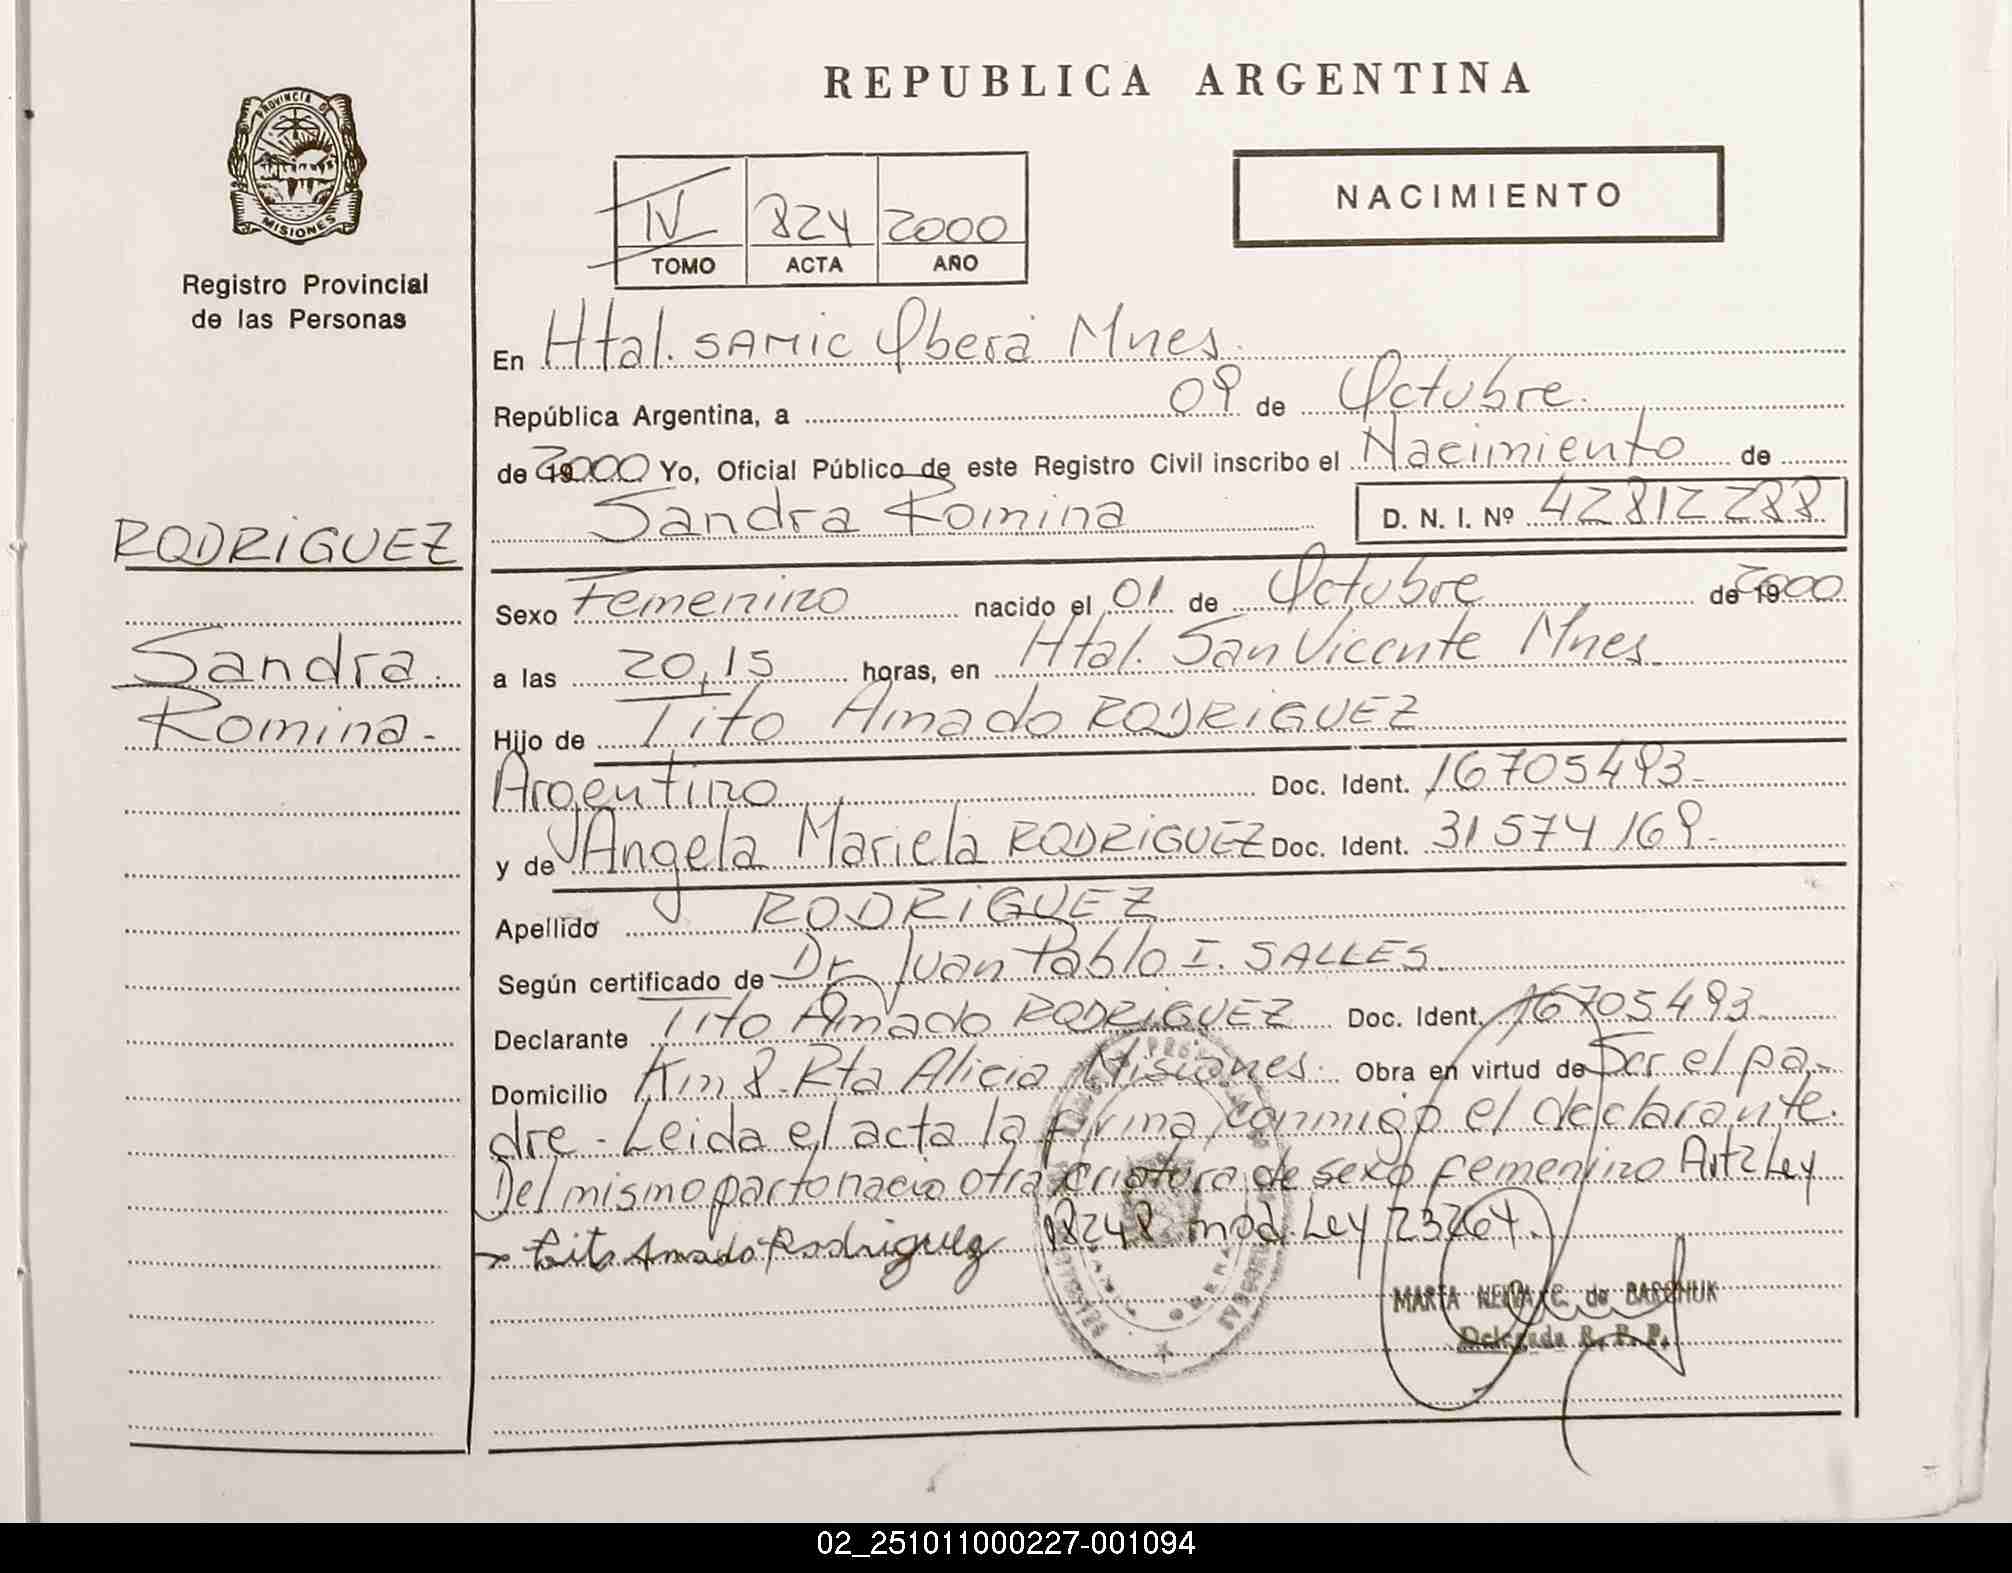 REPUBLICA ARGENTINA
PROVINCIA DE
MISIONES
Registro Provincial
de las Personas
NACIMIENTO
IV 824 2000
TOMO ACTA AÑO
En Htal. SAMIC Oberá Mnes.
República Argentina, a 09 de Octubre.
de 2000 Yo, Oficial Público de este Registro Civil inscribo el Nacimiento de
Sandra Romina D. N. I. Nº 42812288
RODRIGUEZ
Sandra
Romina.-
Sexo Femenino nacido el 01 de Octubre de 2000
a las 20,15 horas, en Htal. San Vicente Mnes.
Hijo de Tito Amado RODRIGUEZ
Argentino Doc. Ident. 16705493-
y de Angela Mariela RODRIGUEZ Doc. Ident. 31574169.-
Apellido RODRIGUEZ
Según certificado de Dr Juan Pablo I. SALLES.
Declarante Tito Amado RODRIGUEZ Doc. Ident. 16705493.
Domicilio Km 8. Rta Alicia Misiones. Obra en virtud de Ser el pa-
dre - Leida el acta la firma conmigo el declarante.
Del mismo parto nacio otra criatura de sexo femenino Art 2 Ley
18248 mod. Ley 23264.
Tito Amado Rodriguez
MARTA NEIVA C. de BARCHUK
Delegada R. P. P.
02_251011000227-001094